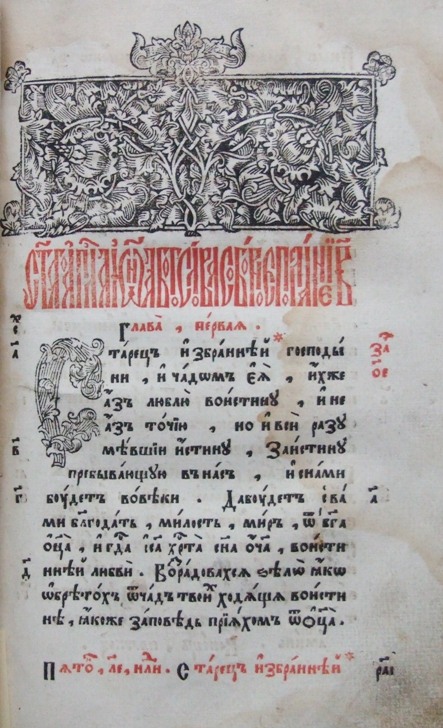 Глава̀ , пе́рвая .
ста́рецъ и҆збра́ннѣй госпоⷤды́
ни , и҆ ча́дѡмъ є҆ѧ̀ , и҆́хже
а҆́зъ люблю̀ вои́стинꙋ , и҆ не
а҆́зъ то́чїю , но и҆ вси̑ разꙋ
мѣ́вшїи и҆́стинꙋ , За и҆́стинꙋ
пребыва́ющꙋю въ на́съ , и҆ сна́ми
боу́детъ во вѣ́ки . Да боу́детъ сва́
ми блгода́ть , ми́лость , ми́ръ , ѿ бг҃а
ѻ҆ц҃а̀ , и҆ гдⷭ҇а і҆са хрⷭ҇та̀ сн҃а ѻ҆́ч҃а , вои́сти
ннѣй любвѝ . Возра́довахсѧ ѕѣлѡ̀ ꙗ҆́кѡ
ѡ҆брѣто́хъ ѿ ча́дъ твои́хъ ходѧ́щїѧ вои́сти
нѣ , ꙗ҆́коже за́повѣдь прїѧ́хомъ ѿ ѻ҆ц҃а̀ .
Ста́рецъ и҆збра́ннѣй